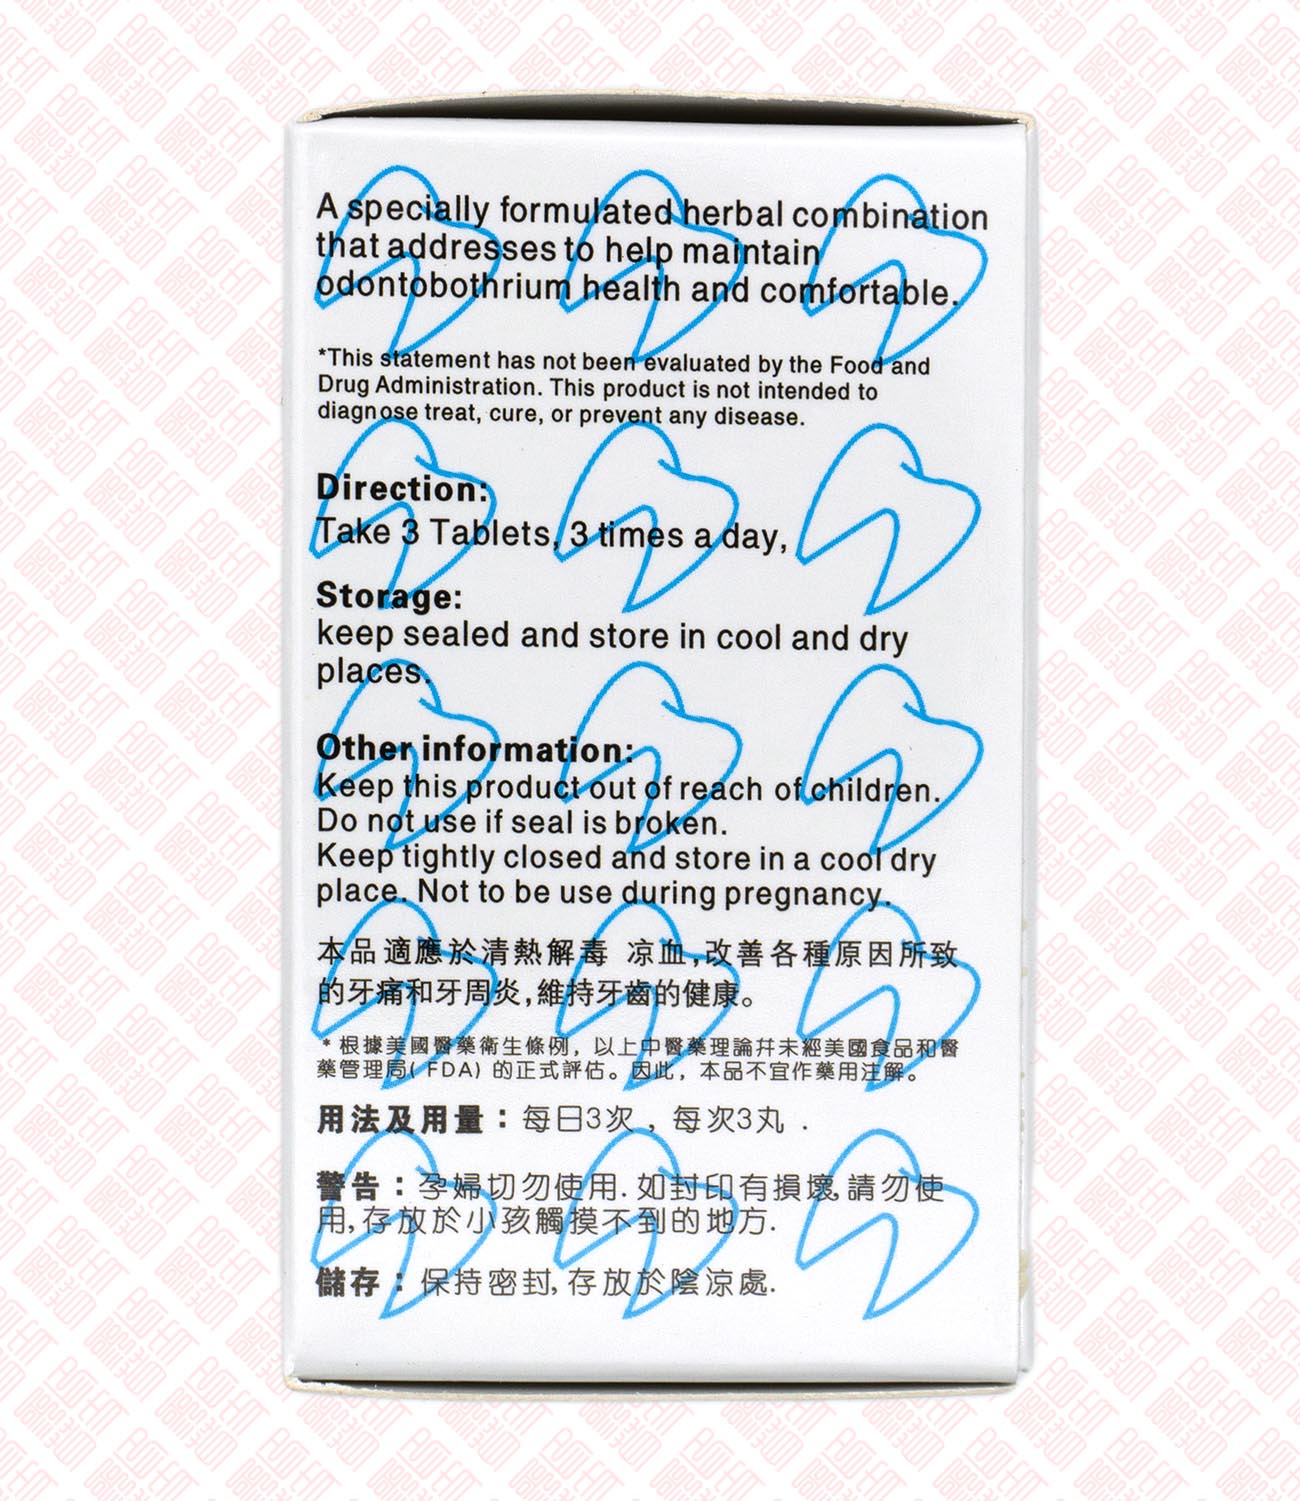 A specially formulated herbal combination
that addresses to help maintain
odontobothrium health and comfortable.
*This statement has not been evaluated by the Food and
Drug Administration. This product is not intended to
diagnose treat, cure, or prevent any disease.
Direction:
Take 3 Tablets, 3 times a day,
Storage:
keep sealed and store in cool and dry
places.
Other information:
Keep this product out of reach of children.
Do not use if seal is broken.
Keep tightly closed and store in a cool dry
place. Not to be use during pregnancy.
本品適應於清熱解毒 凉血,改善各種原因所致
的牙痛和牙周炎,維持牙齒的健康。
* 根據美國醫藥衛生條例，以上中醫藥理論幷未經美國食品和醫
藥管理局( FDA) 的正式評估。因此，本品不宜作藥用注解。
用法及用量：每日3次，每次3丸 .
警告：孕婦切勿使用. 如封印有損壞,請勿使
用,存放於小孩觸摸不到的地方.
儲存：保持密封, 存放於陰涼處.